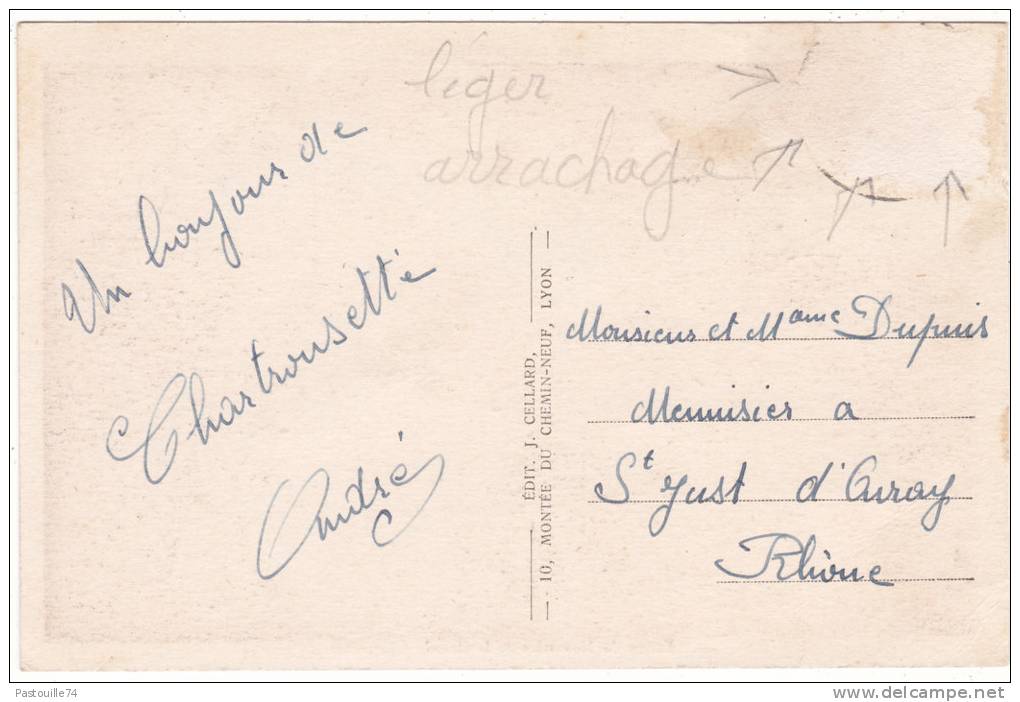 léger
arrachage
Un bonjour de
Chartrousette
André
ÉDIT. J. CELLARD,
10, MONTÉE DU CHEMIN-NEUF, LYON
Monsieur et Mame Dupuis
Menuisier a
St Just d'Avray
Rhône
Pastouille74
www.delcampe.net